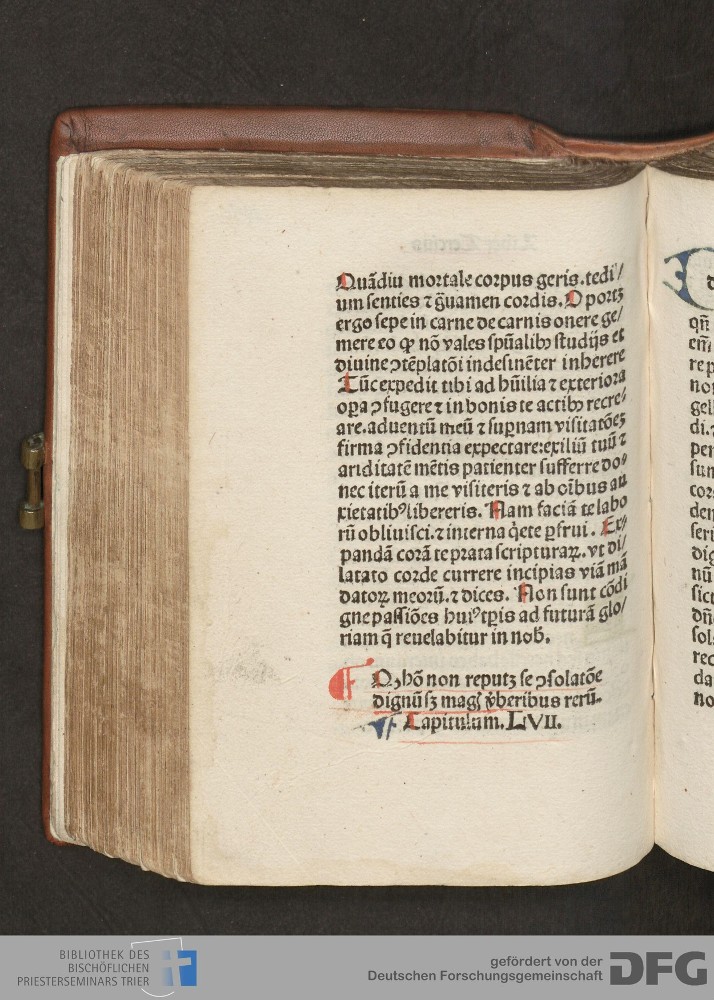 Quādiu mortale corpus geris. tedi/
um senties ⁊ g̃uamen cordis. Oportꝫ
ergo sepe in carne de carnis onere ge/
mere eo ꝙ nō vales sp̄ualibꝰ studijs et
diuine ꝯtēplatōi indesinēter inherere
Tūc expedit tibi ad hūilia ⁊ exteriora
oꝑa ꝯfugere ⁊ in bonis te actibꝰ recre/
are. aduentū meū ⁊ suꝑnam visitatōeꝫ
firma ꝯfidentia expectare: exiliū tuū ⁊
ariditatē mētis patienter sufferre do/
nec iterū a me visiteris ⁊ ab oībus an
xietatibꝰ libereris. Nam faciā te labo
rū obliuisci. ⁊ interna q̇ete ꝑfrui. Ex/
pandā corā te prata scripturaꝝ. vt di/
latato corde currere incipias viā mā
datoꝝ meorū. ⁊ dices. Non sunt cōdi
gne passiōes huiꝰ tꝑis ad futurā glo/
riam q̄ reuelabitur in nob̄.
Qꝫ hō non reputꝫ se ꝯsolatōe
dignū sꝫ mag̕ v̄beribus rerū.
Capitulum. LVII.
qn̄
re
di.
sun
den
dig
nū
dn̄
sol
rec
da
no
BIBLIOTHEK DES
BISCHÖFLICHEN
PRIESTERSEMINARS TRIER
gefördert von der
Deutschen Forschungsgemeinschaft DFG